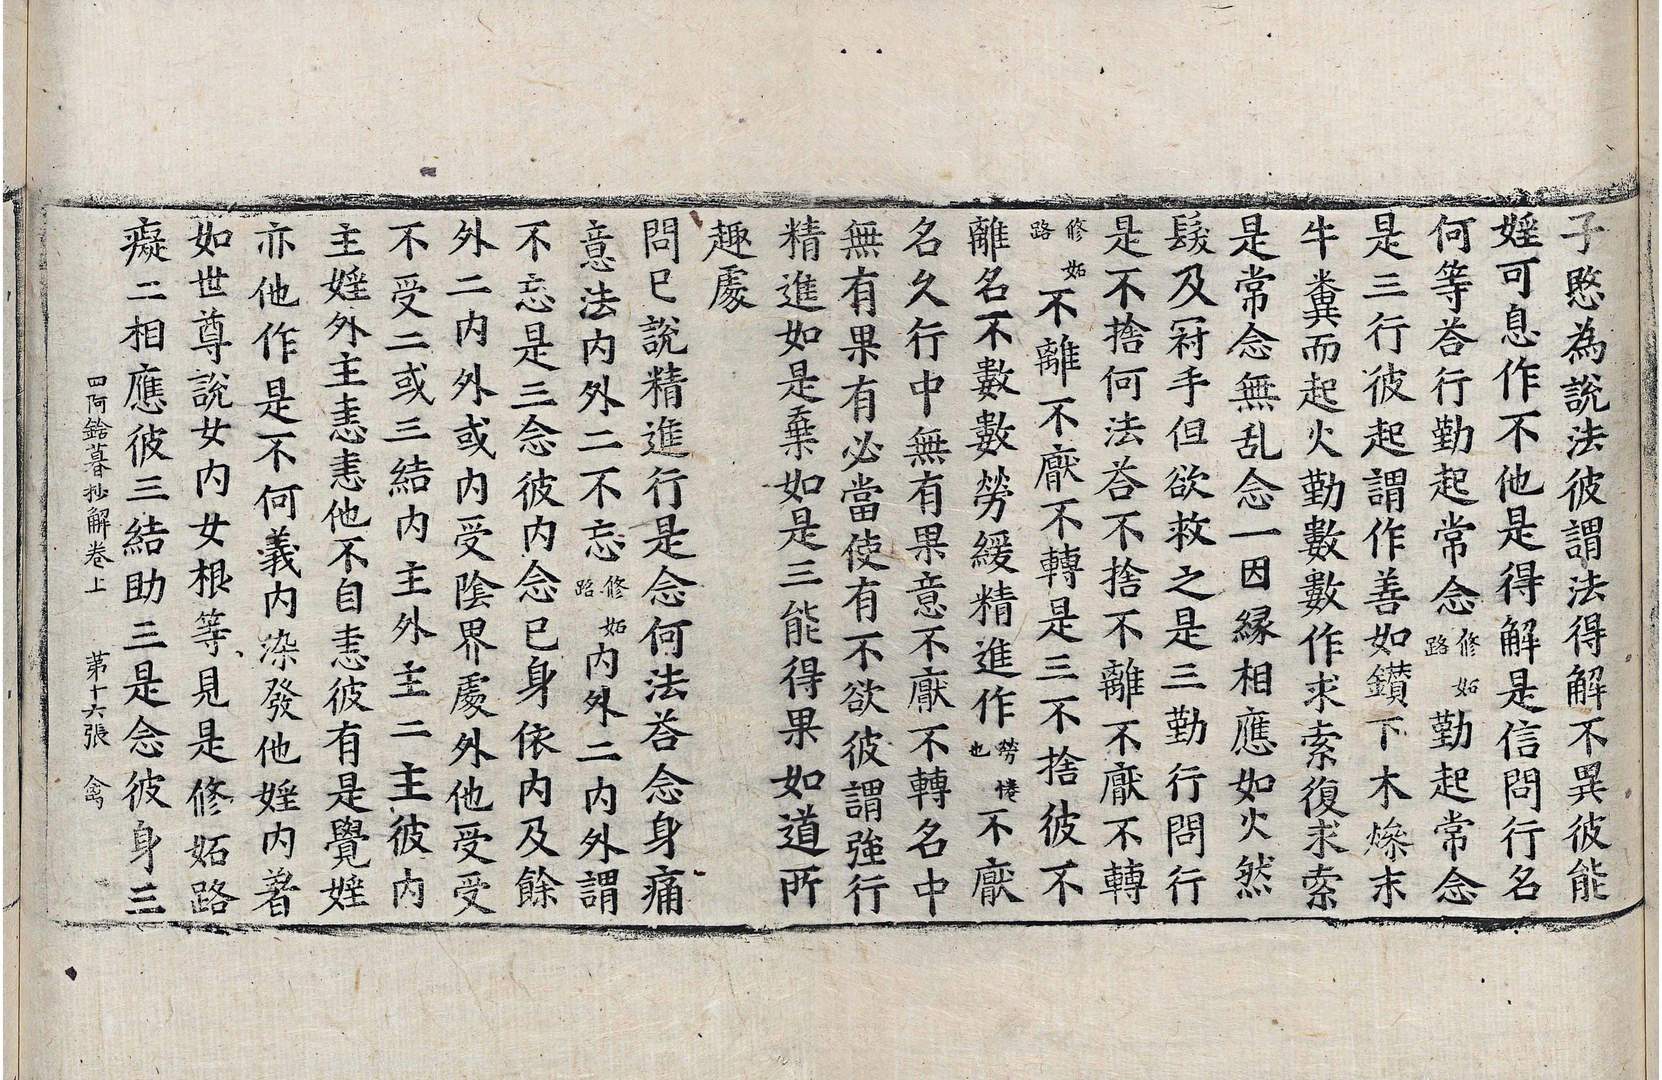 子愍為說法彼謂法得解不異彼能
婬可息作不他是得解是信問行名
何等荅行勤起常念修妬路勤起常念
是三行彼起謂作善如鑽下木燥末
牛糞而起火勤數數作求索復求索
是常念無乱念一因縁相應如火然
髮及冠手但欲救之是三勤行問行
是不捨何法荅不捨不離不厭不轉
修妬路不離不厭不轉是三不捨彼不
離名不數數勞緩精進作勞惓也不厭
名久行中無有果意不厭不轉名中
無有果有必當使有不欲彼謂強行
精進如是乗如是三能得果如道所
趣處
問已說精進行是念何法荅念身痛
意法內外二不忘修妬路內外二內外謂
不忘是三念彼內念已身依內及餘
外二內外或內受陰界處外他受受
不受二或三結內主外主二主彼內
主婬外主恚恚他不自恚彼有是覺婬
亦他作是不何義內染發他婬內著
如世尊說女內女根等見是修妬路
癡二相應彼三結助三是念彼身三
四阿鋡暮抄解卷上 第十六張 禽